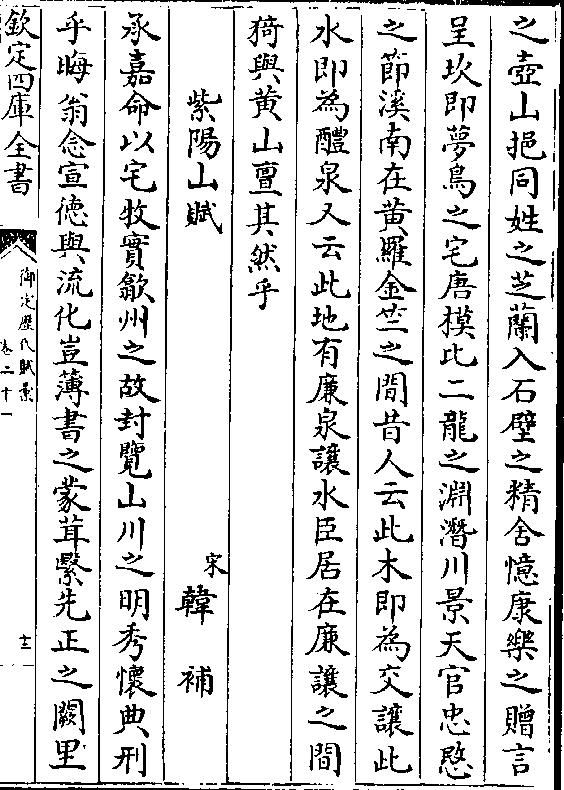 之壺山挹同姓之芝蘭入石壁之精舍憶康樂之贈言
呈坎即夢鳥之宅唐模比二龍之淵潛川景天官忠愍
之節溪南在黃羅金竺之間昔人云此木即為交讓此
水即為醴泉又云此地有廉泉讓水臣居在廉讓之間
猗與黃山亶其然乎
紫陽山賦 宋韓補
承嘉命以宅牧實歙州之故封覽山川之明秀懷典刑
乎晦翁念宣德與流化豈薄書之蒙茸繄先正之闕里
欽定四庫全書
御定歷代賦彙
卷二十一
十三